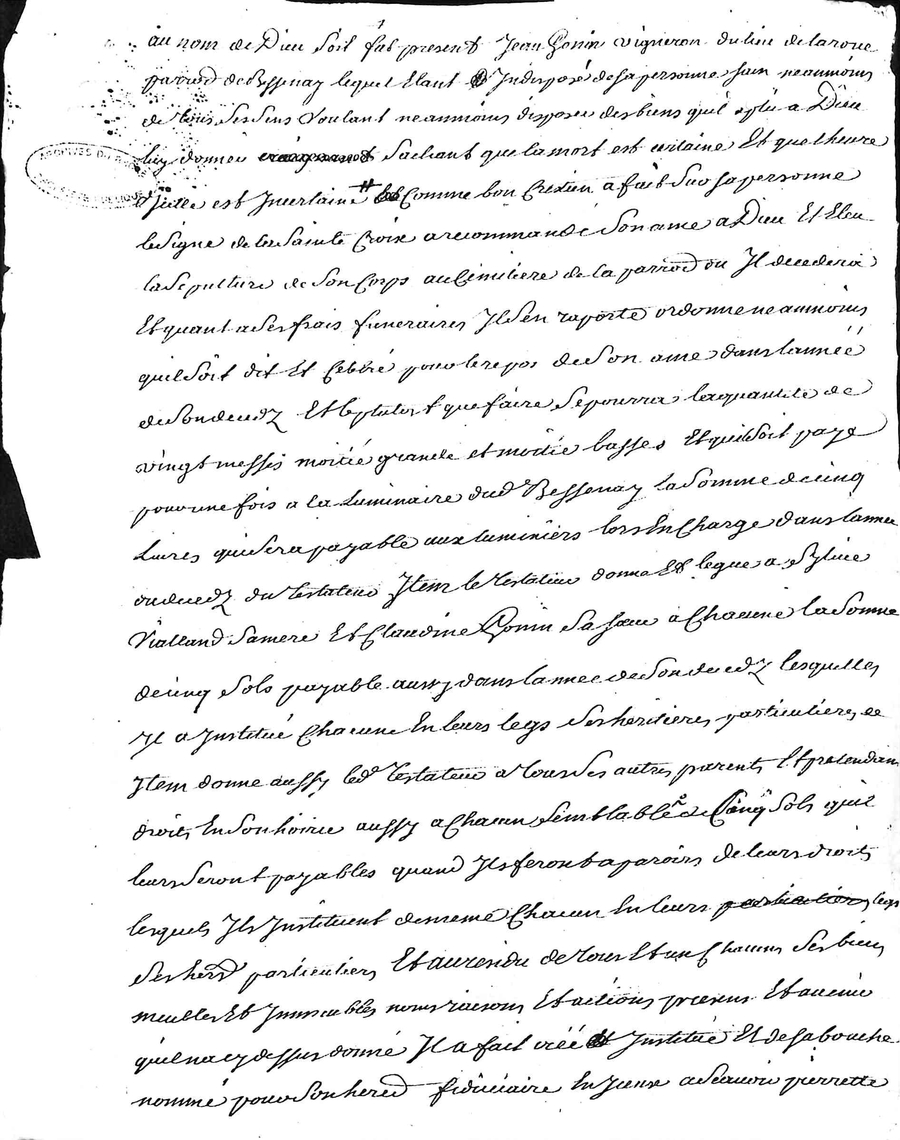 au nom de Dieu soit fut present Jean Gonin vigneron du lieu de laroue
parrod de Bessenay lequel Etant Indisposé de sa personne sain neanmoins
de tous ses sens voulant neanmoins disposer des biens quil a plu a Dieu
luy donner sachant que la mort est certaine Et que lheure
d'jcelle est Incertaine # Comme bon Cretien a fait sur sa personne
le signe de la Sainte Croix a recommandé son ame a Dieu Et Eleu
la sepulture de son Corps au Cimetiere de la parrod ou Il decedera
Et quant a ses frais funeraires Il s'en raporte ordonne neanmoins
quil soit dit Et Celebré pour le repos de son ame dans lannée
de son decedz Et le plutost que faire se pourra la quantité de
vingt messes moitié grande et moitié basses Et quil soit payé
pour une fois a la Luminaire dud Bessenay la somme de cinq
Livres qui sera payable aux luminiers lors En Charge dans lannée
du decedz du testateur Item le testateur donne Et legue a
Vialland sa mere Et Claudine Gonin sa sœur a Chacune la somme
de cinq sols payable aussy dans lannee de son decedz lesquelles
Il a Institué Chacune En leurs legs ses heritieres particulieres
Item donne aussy led testateur a tous ses autres parents Et pretendans
droits En son hoirie aussy a Chacun semblable de Cinq sols quil
leurs seront payables quand Ils feront aparoir de leurs droits
lesquels Ils Instituent de meme Chacun En leurs particuliers legs
ses herd particuliers Et au residu de tous Et un Chacuns ses biens
meubles Et Immeubles noms raisons Et actions presens Et avenir
quil na cy dessus donné Il a fait créé Institué Et de sa bouche
nommé pour son hered fiduciaire a scavoir pierrette